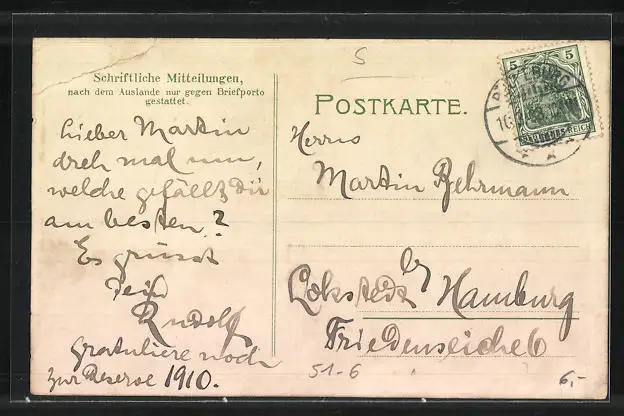 S
Schriftliche Mitteilungen,
nach dem Auslande nur gegen Briefporto
gestattet.
POSTKARTE.
5 5
DEUTSCHES REICH
Lieber Martin
dreh mal um,
welche gefällt Dir
am besten?
Es grüsst
Dein
Rudolf
gratuliere noch
zur Reserve 1910.
Herrn
Martin Behrmann
Lokstedt b/ Hamburg
Friedenseiche 6
51-6
6,-